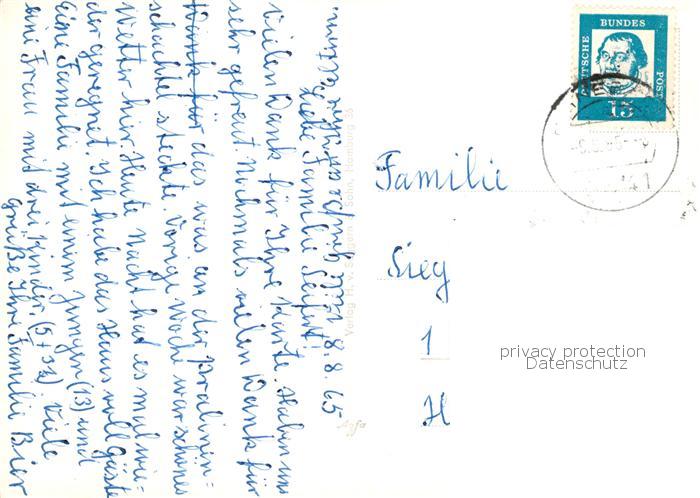 8.8.65
Liebe Familie Seifert!
Vielen Dank für Ihre Karte. Haben uns
sehr gefreut. Nochmals vielen Dank für
Dank für das was an der Pralinen=
schachtel steckte. Vorige Woche war schönes
Wetter hier. Heute Nacht hat es mal wie=
der geregnet. Ich habe das Haus voll Gäste
Eine Familie mit einem Jungen (13) und
eine Frau mit drei Kinder. (5 + 3 x) Viele
Grüße Ihre Familie Bier
Verlag H. v. Sohn, Hamburg 36
Agfa
Familie
Sieg
1
H
DEUTSCHE
BUNDES
POST
15
privacy protection
Datenschutz